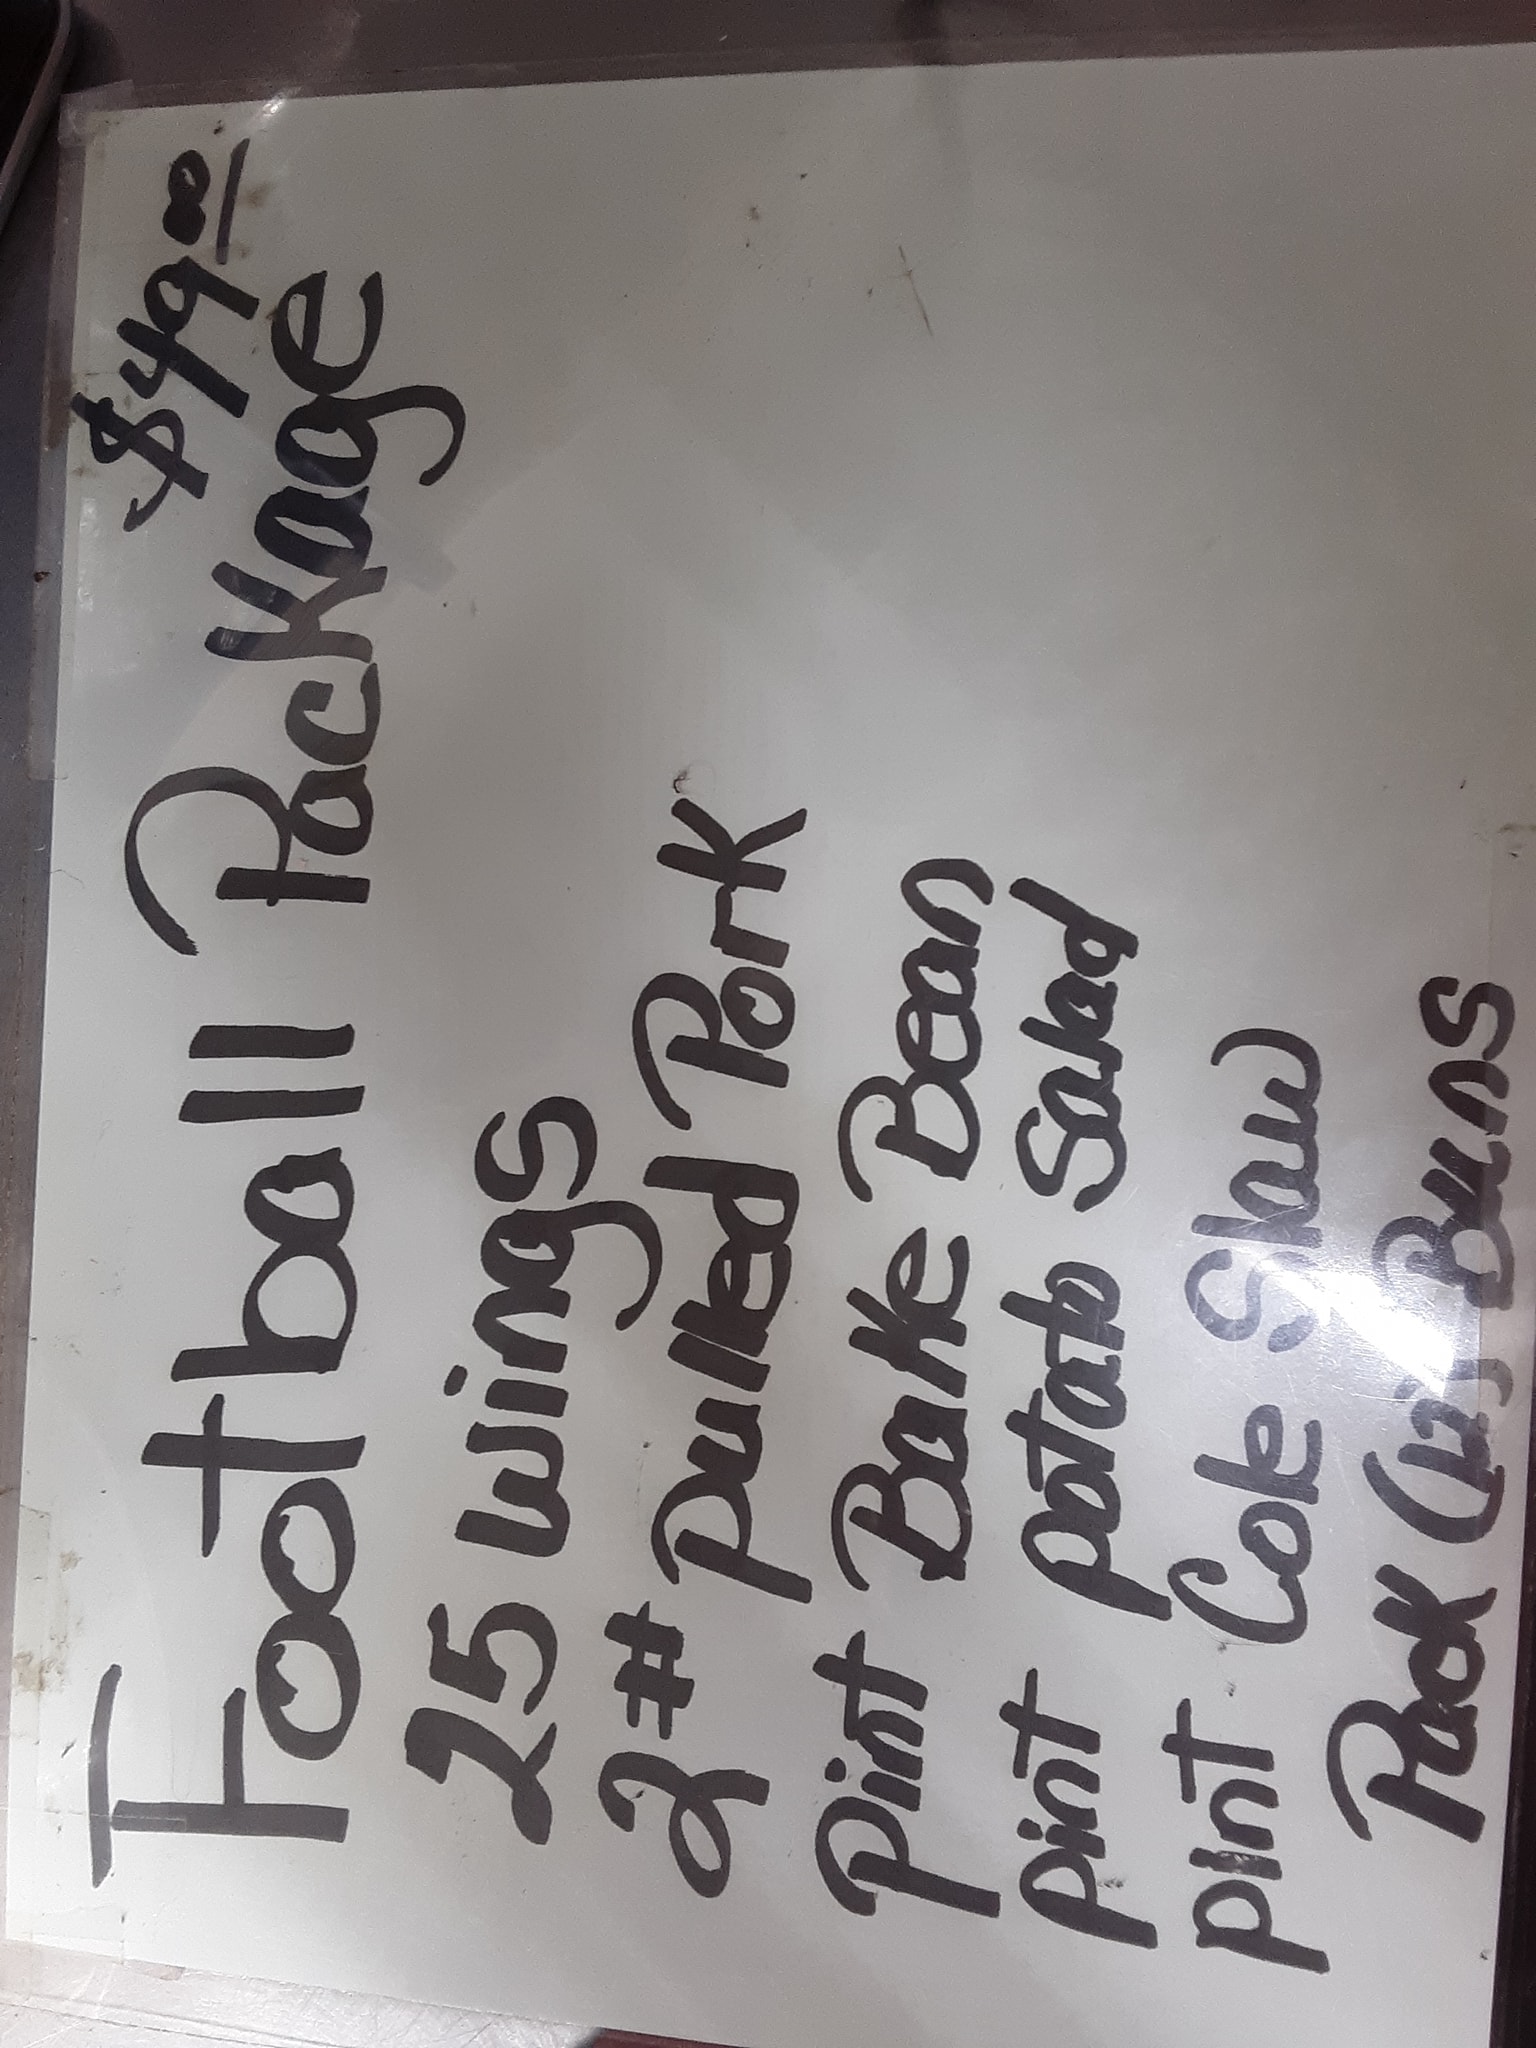 $49.00
Football Package
25 wings
2# pulled Pork
pint Bake Bean
pint potato Salad
pint Cole Slaw
Pack (12) Buns